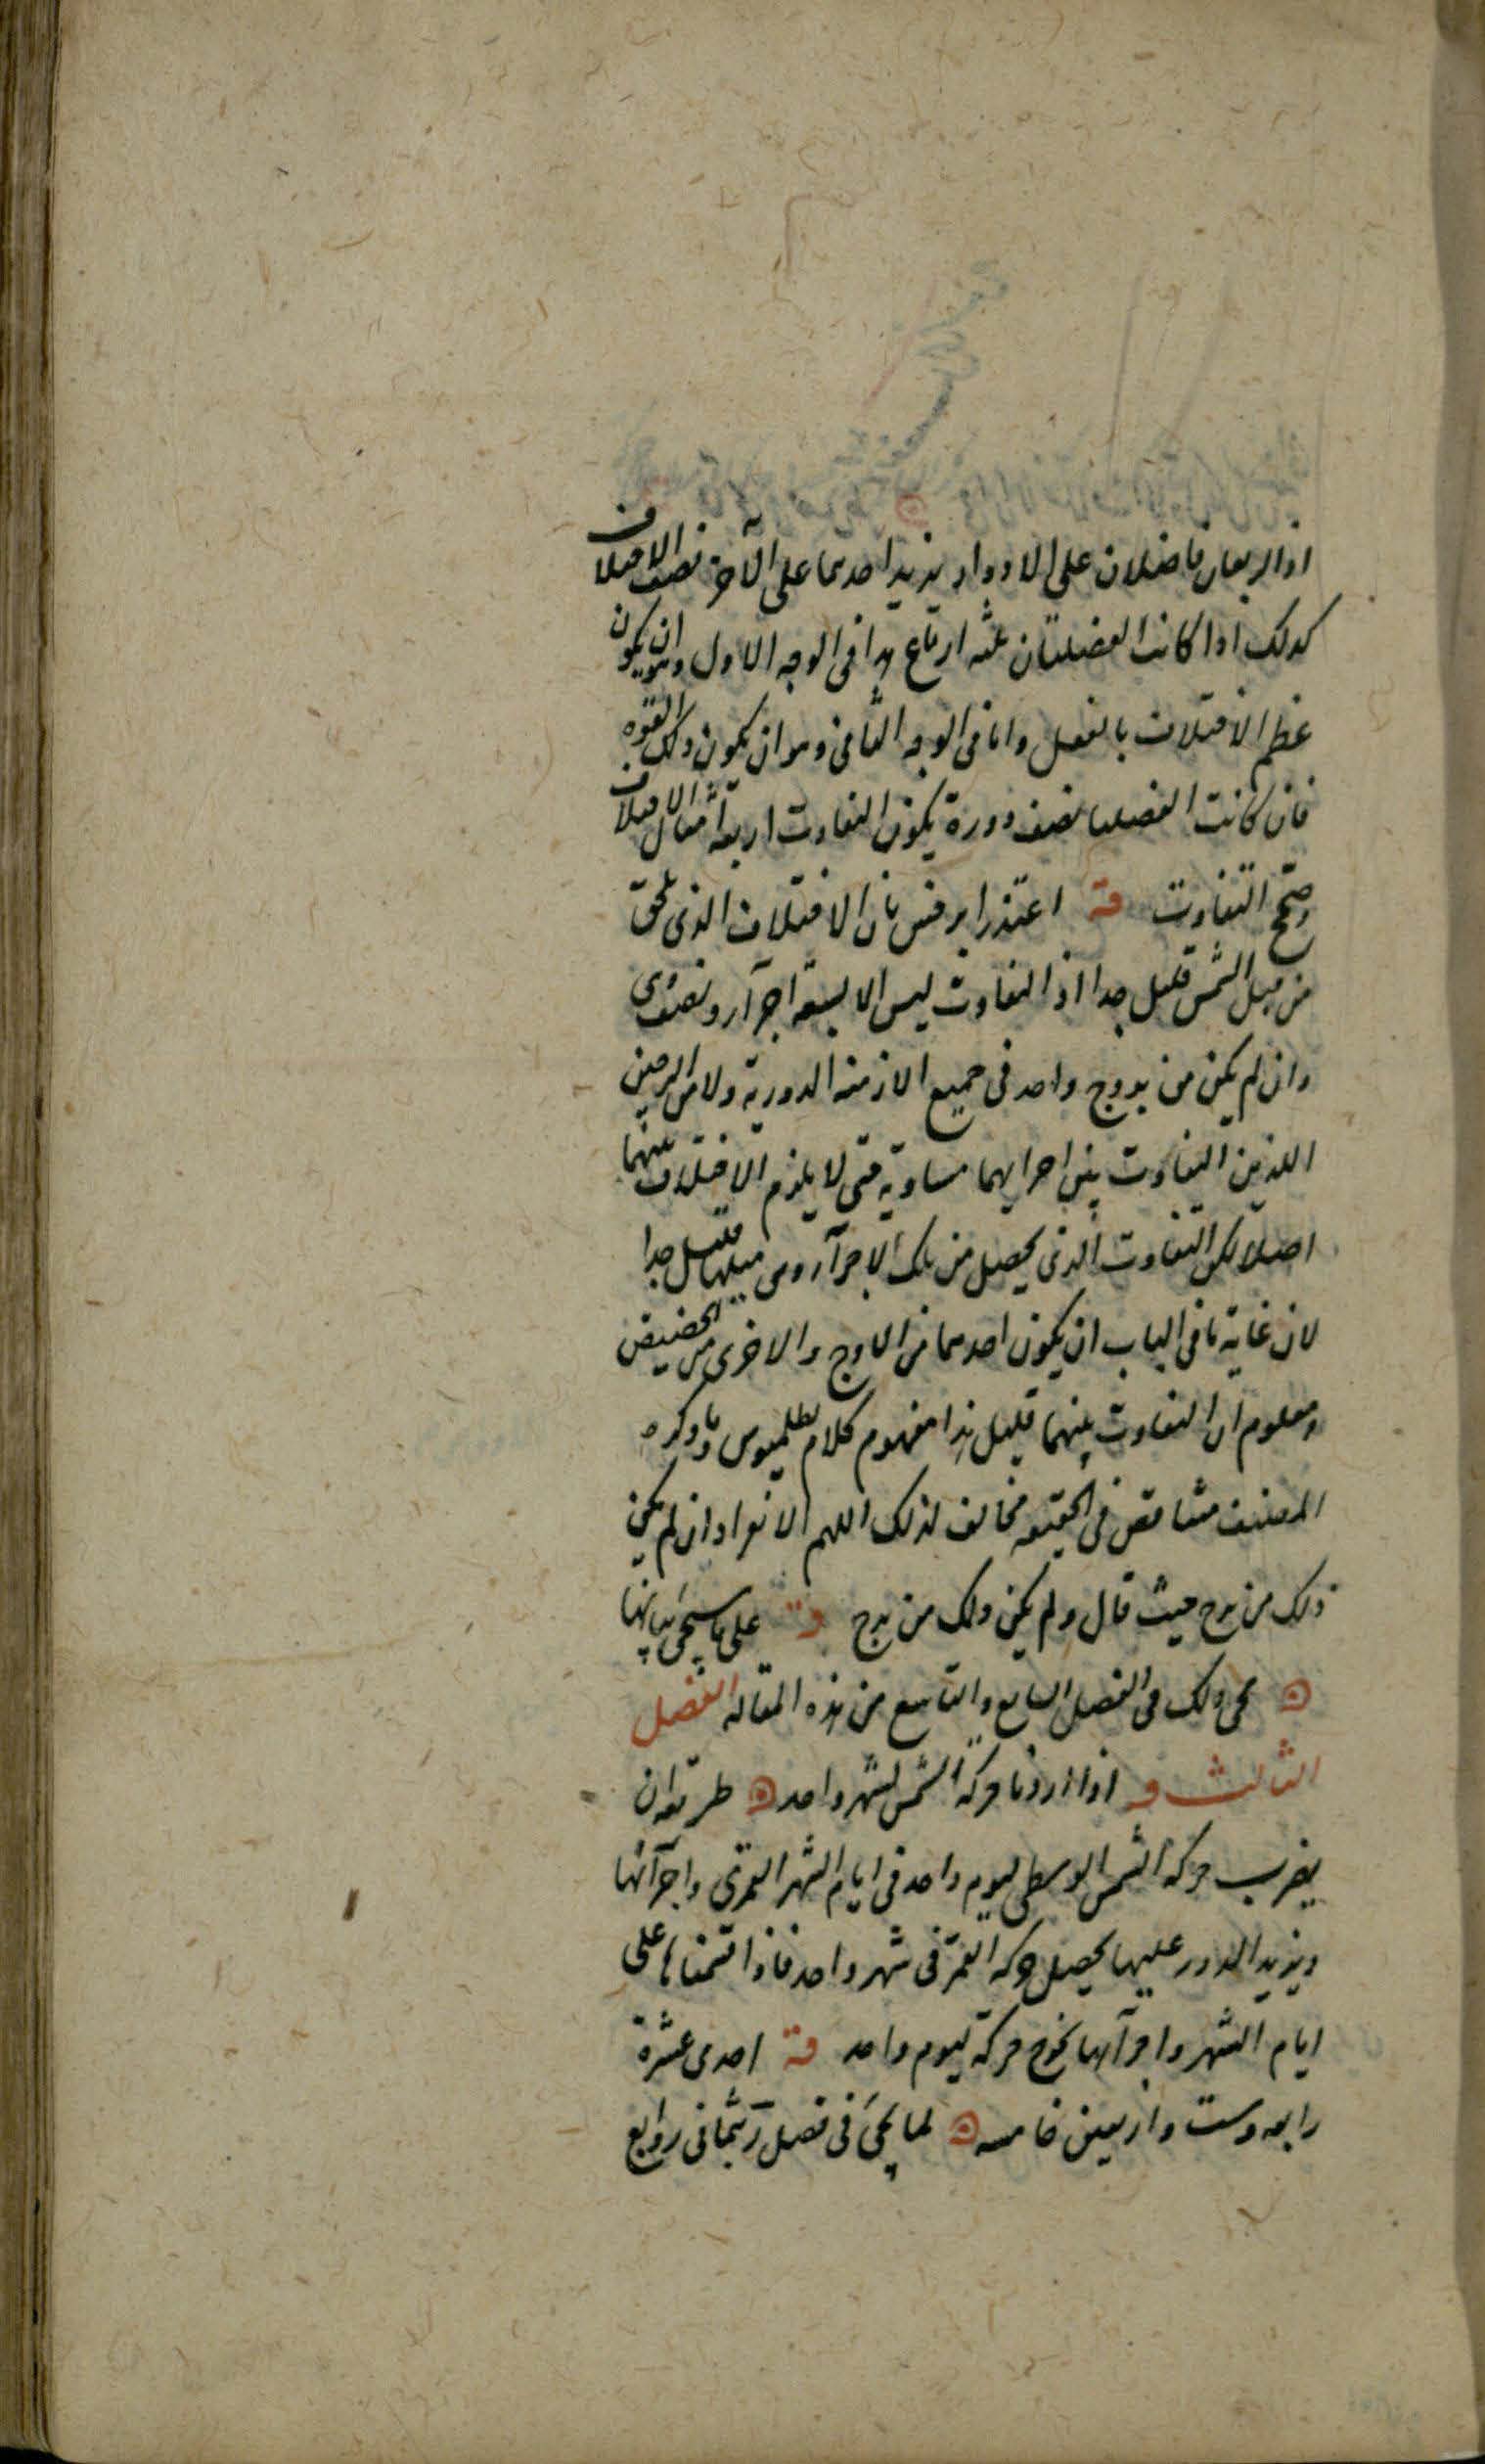 اذ الربعان فاضلان على الادوار يزيد احدهما على الآخر نصف الاختلاف
كذلك اذا كانت الفضلتان ثلثه ارباع هذا فى الوجه الاول وهو ان يكون
عظم الاختلاف بالفعل واما فى الوجه الثانى وهو ان يكون ذلك بالقوه
فان كانت الفضلتا نصف دورة يكون التفاوت اربعة امثال الاختلاف
وضح التفاوت قه اعتذر ابرخس بان الاختلاف الذى يلحق
من قبل الشمس قليل جدا اذ التفاوت ليس الا لسبعة اجزآء ونصف وهى
وان لم يكن من بروج واحد فى جميع الازمنه الدورية ولا من البرجين
اللذين التفاوت بين اجزايهما مساوية حتى لا يلزم الاختلاف بينهما
اصلا لكن التفاوت الذى يحصل من تلك الاجزآء وهى مثلها قليل جدا
لان غاية ما فى الباب ان يكون احدهما من الاوج والاخرى من الحضيض
ومعلوم ان التفاوت بينهما قليل هذا مفهوم كلام بطلميوس وما ذكره
المصنف متناقض فى الحقيقه مخالف لذلك اللهم الا ان يراد ان لم يكن
ذلك من برج حيث قال ولم يكن ذلك من برج قه على ما سيجئ بيانها
۞ يجى ذلك فى الفصل السابع والتاسع من هذه المقاله الفصل
الثالث قه اذا اردنا حركة الشمس لشهر واحد ۞ طريقه ان
يضرب حركة الشمس الوسطى ليوم واحد فى ايام الشهر القمرى واجزآئها
ويزيد الدور عليها يحصل حركة القمر فى شهر واحد فاذا قسمناها على
ايام الشهر واجزآئها يخرج حركته ليوم واحد قه احدى عشرة
رابعه وست واربعين خامسه ۞ لما يجئ فى فصل ز ثمانى روابع